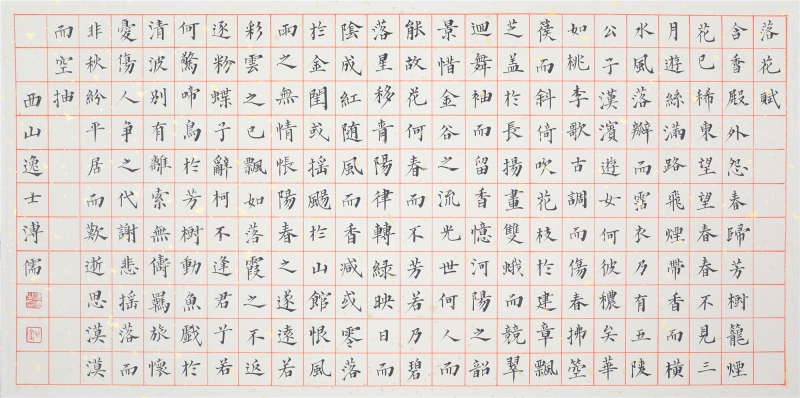 落花賦
含香殿外怨春歸芳樹籠煙
花已稀東望望春春不見三
月遊絲滿路飛煙帶香而橫
水風落瓣而霑衣乃有五陵
公子漢濱遊女何彼襛矣華
如桃李歌古調而傷春拂箜
篌而斜倚吹花枝於建章飄
芝蓋於長揚畫雙蛾而競翠
迴舞袖而留香憶河陽之韶
景惜金谷之流光世何人而
能故花何春而不芳若乃碧
落星移青陽律轉綠映日而
陰成紅随風而香減或零落
於金閨或摇颺於山館恨風
雨之無情悵陽春之遂遠若
彩雲之已飄如落霞之不返
逐粉蝶子辭柯不逢君兮若
何驚啼鳥於芳樹動魚戲於
清波別有離索無儔羈旅懷
憂傷人爭之代謝悲摇落而
非秋紛平居而歎逝思漠漠
而空抽
西山逸士溥儒